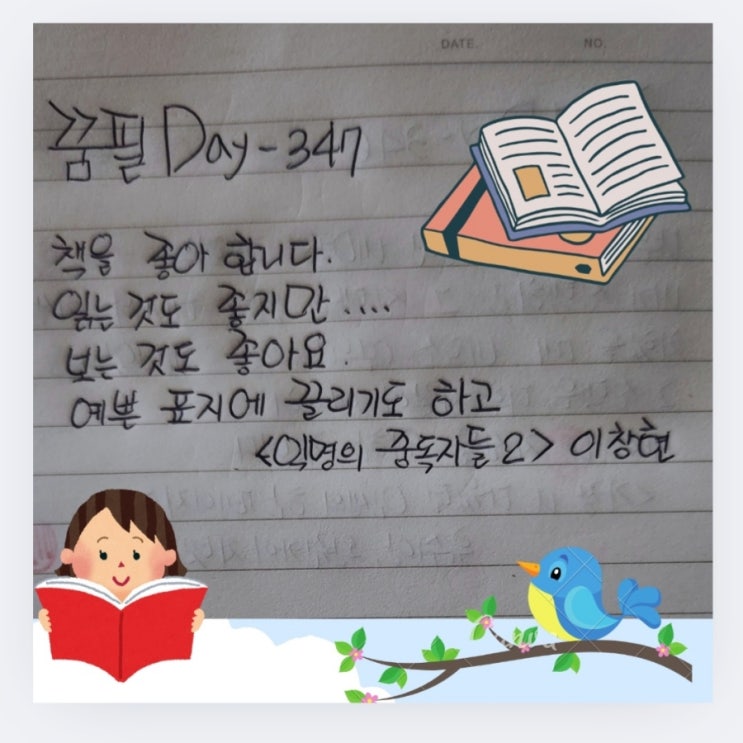 DATE. NO.
꿈필 Day-347
책을 좋아 합니다.
읽는 것도 좋지만....
보는 것도 좋아요.
예쁜 표지에 끌리기도 하고
<익명의 중독자들2> 이창현